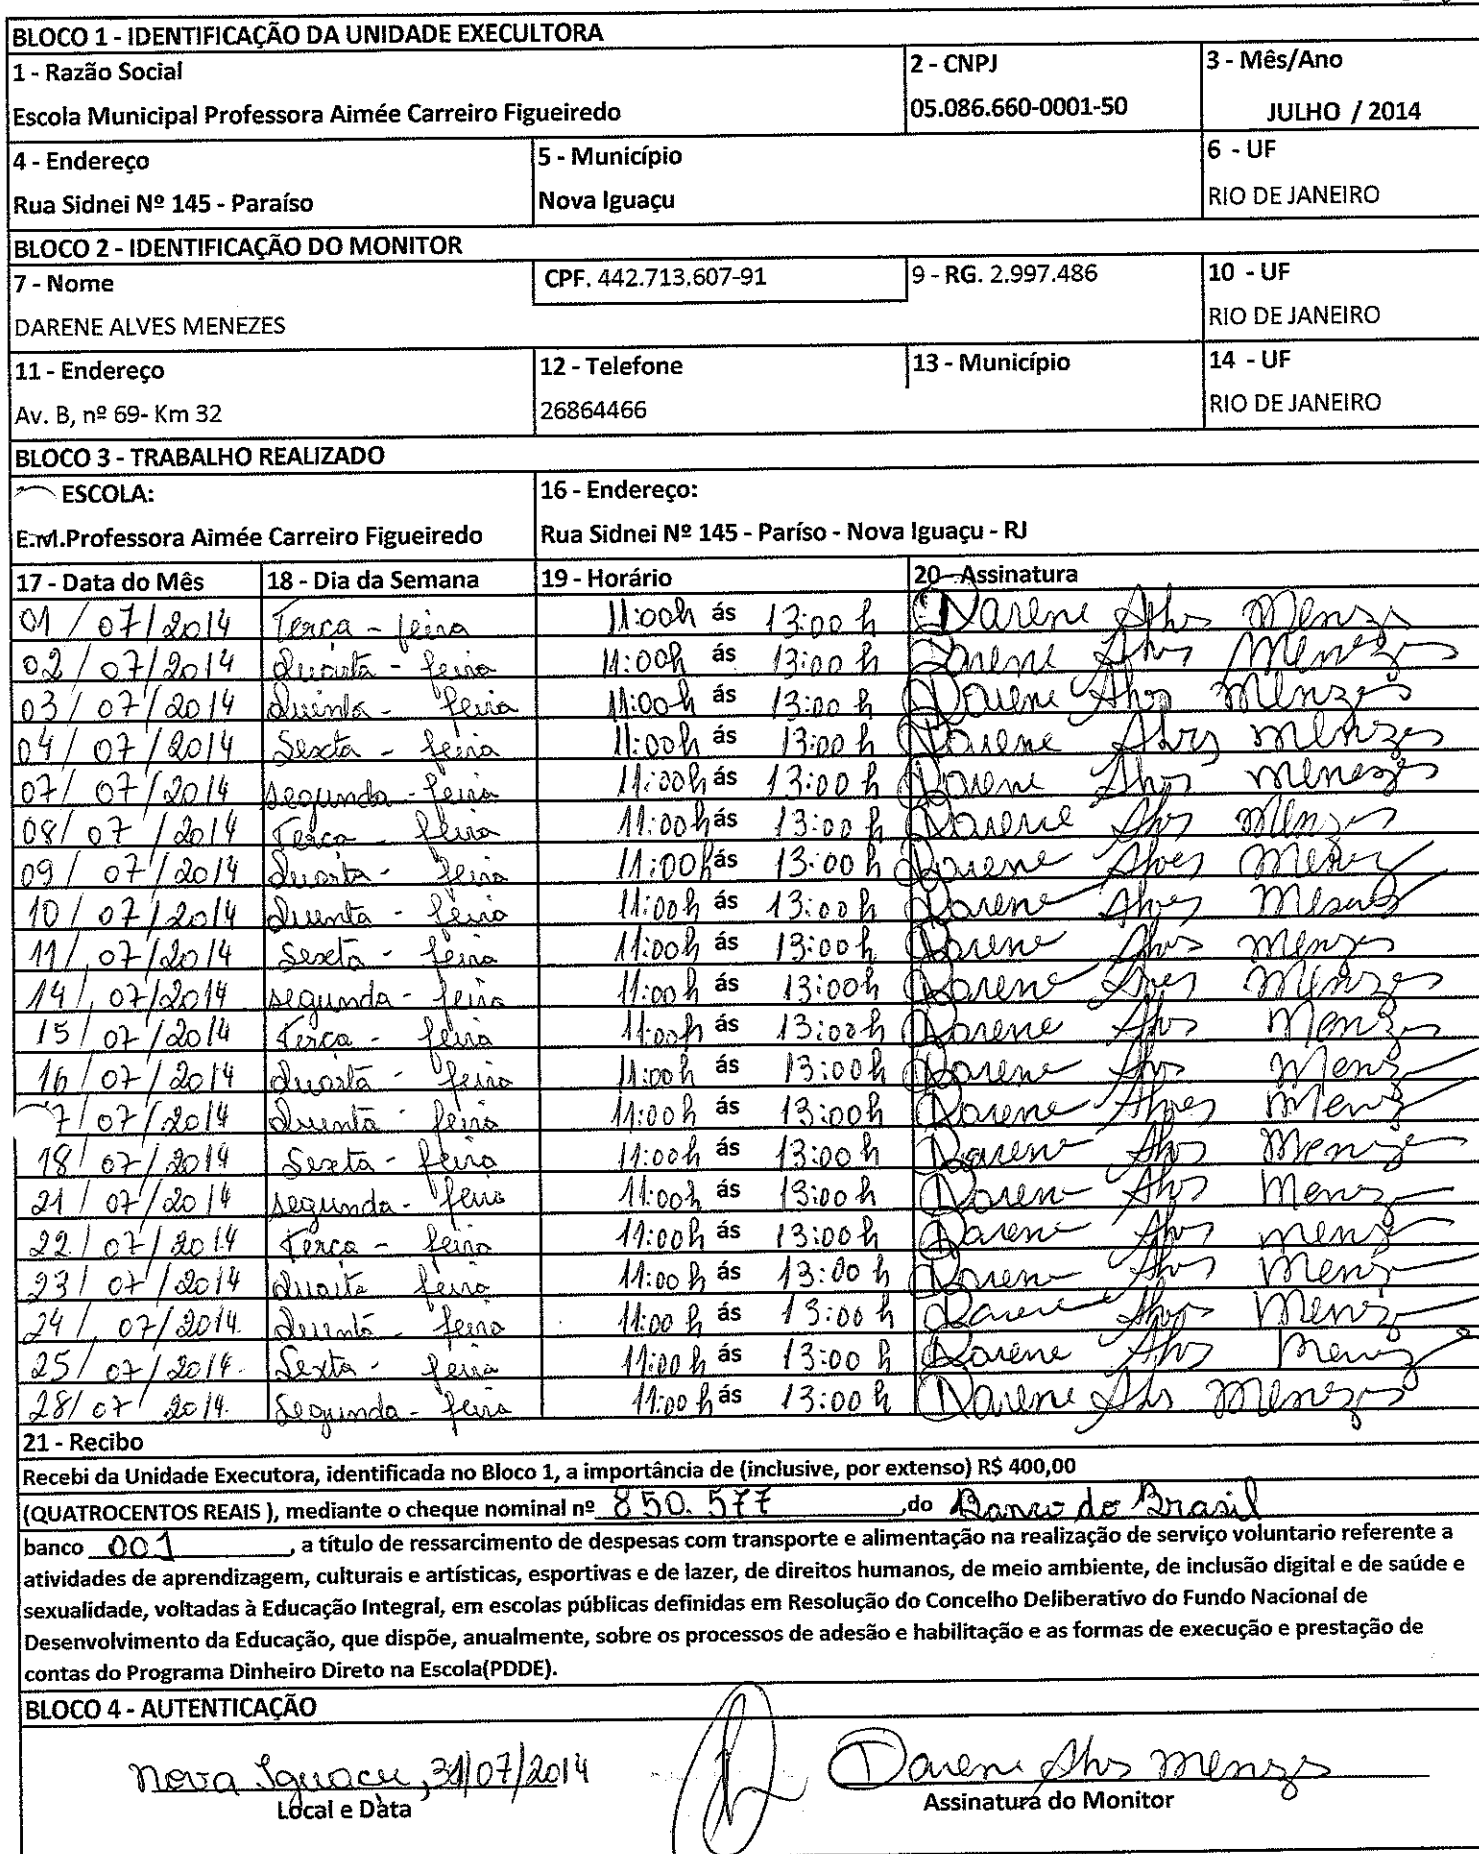 BLOCO 1 - IDENTIFICAÇÃO DA UNIDADE EXECULTORA
1 - Razão Social 2 - CNPJ 3 - Mês/Ano
Escola Municipal Professora Aimée Carreiro Figueiredo 05.086.660-0001-50 JULHO / 2014
4 - Endereço 5 - Município 6 - UF
Rua Sidnei Nº 145 - Paraíso Nova Iguaçu RIO DE JANEIRO
BLOCO 2 - IDENTIFICAÇÃO DO MONITOR
7 - Nome CPF. 442.713.607-91 9 - RG. 2.997.486 10 - UF
DARENE ALVES MENEZES RIO DE JANEIRO
11 - Endereço 12 - Telefone 13 - Município 14 - UF
Av. B, nº 69- Km 32 26864466 RIO DE JANEIRO
BLOCO 3 - TRABALHO REALIZADO
ESCOLA: 16 - Endereço:
E.M.Professora Aimée Carreiro Figueiredo Rua Sidnei Nº 145 - Paríso - Nova Iguaçu - RJ
17 - Data do Mês 18 - Dia da Semana 19 - Horário 20 - Assinatura
01/07/2014 Terça - feira 11:00h ás 13:00 h Darene Alves Menezes
02/07/2014 Quarta - feira 11:00h ás 13:00 h Darene Alves Menezes
03/07/2014 Quinta - feira 11:00h ás 13:00 h Darene Alves Menezes
04/07/2014 Sexta - feira 11:00h ás 13:00 h Darene Alves Menezes
07/07/2014 segunda - feira 11:00h ás 13:00 h Darene Alves Menezes
08/07/2014 Terça - feira 11:00h ás 13:00 h Darene Alves Menezes
09/07/2014 Quarta - feira 11:00h ás 13:00 h Darene Alves Menezes
10/07/2014 Quenta - feira 11:00h ás 13:00 h Darene Alves Menezes
11/07/2014 Sexta - feira 11:00h ás 13:00 h Darene Alves Menezes
14/07/2014 segunda - feira 11:00h ás 13:00h Darene Alves Menezes
15/07/2014 Terça - feira 11:00h ás 13:00h Darene Alves Menezes
16/07/2014 Quarta - feira 11:00h ás 13:00h Darene Alves Menez
7/07/2014 Quenta - feira 11:00h ás 13:00h Darene Alves Menez
18/07/2014 Sexta - feira 11:00h ás 13:00 h Darene Alves Menez
21/07/2014 segunda - feira 11:00h ás 13:00 h Darene Alves Menez
22/07/2014 Terça - feira 11:00h ás 13:00 h Darene Alves Menez
23/07/2014 Quarta feira 11:00 h ás 13:00 h Darene Alves Menez
24/07/2014. Quenta - feira 11:00 h ás 13:00 h Darene Alves Menez
25/07/2014. Sexta - feira 11:00 h ás 13:00 h Darene Alves Menez
28/07/2014. Segunda - feira 11:00 h ás 13:00 h Darene Alves Menezes
21 - Recibo
Recebi da Unidade Executora, identificada no Bloco 1, a importância de (inclusive, por extenso) R$ 400,00
(QUATROCENTOS REAIS ), mediante o cheque nominal nº 850.577 ,do Banco do Brasil
banco 001 , a título de ressarcimento de despesas com transporte e alimentação na realização de serviço voluntario referente a
atividades de aprendizagem, culturais e artísticas, esportivas e de lazer, de direitos humanos, de meio ambiente, de inclusão digital e de saúde e
sexualidade, voltadas à Educação Integral, em escolas públicas definidas em Resolução do Concelho Deliberativo do Fundo Nacional de
Desenvolvimento da Educação, que dispõe, anualmente, sobre os processos de adesão e habilitação e as formas de execução e prestação de
contas do Programa Dinheiro Direto na Escola(PDDE).
BLOCO 4 - AUTENTICAÇÃO
Nova Iguaçu, 31/07/2014 Darene Alves Menezes
Local e Data Assinatura do Monitor